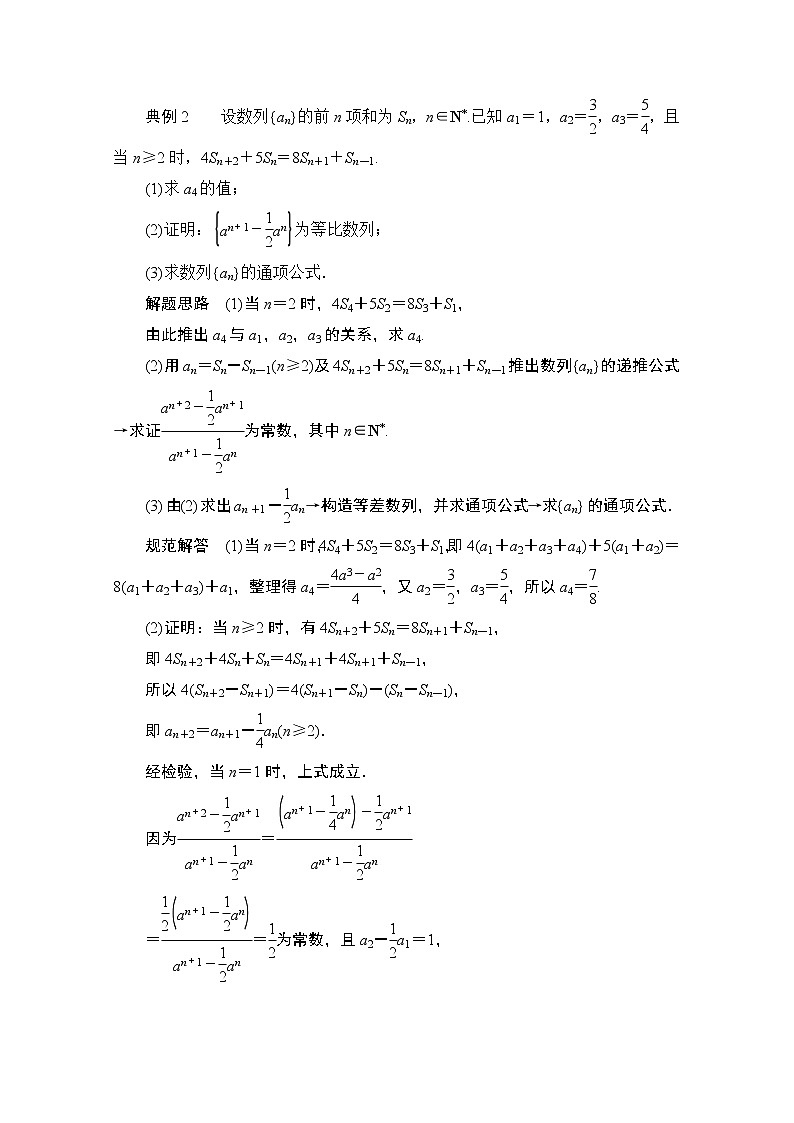 典例2　　设数列{an}的前n项和为Sn，n∈N*.已知a1＝1，a2＝3/2，a3＝5/4，且
当n≥2时，4Sn＋2＋5Sn＝8Sn＋1＋Sn－1.
(1)求a4的值；
(2)证明：{an＋1－1/2an}为等比数列；
(3)求数列{an}的通项公式．
解题思路　(1)当n＝2时，4S4＋5S2＝8S3＋S1，
由此推出a4与a1，a2，a3的关系，求a4.
(2)用an＝Sn－Sn－1(n≥2)及4Sn＋2＋5Sn＝8Sn＋1＋Sn－1推出数列{an}的递推公式
→求证(an＋2－1/2an＋1)/(an＋1－1/2an)为常数，其中n∈N*.
(3)由(2)求出an＋1－1/2an→构造等差数列，并求通项公式→求{an}的通项公式．
规范解答　(1)当n＝2时，4S4＋5S2＝8S3＋S1，即4(a1＋a2＋a3＋a4)＋5(a1＋a2)＝
8(a1＋a2＋a3)＋a1，整理得a4＝(4a3－a2)/4，又a2＝3/2，a3＝5/4，所以a4＝7/8.
(2)证明：当n≥2时，有4Sn＋2＋5Sn＝8Sn＋1＋Sn－1，
即4Sn＋2＋4Sn＋Sn＝4Sn＋1＋4Sn＋1＋Sn－1，
所以4(Sn＋2－Sn＋1)＝4(Sn＋1－Sn)－(Sn－Sn－1)，
即an＋2＝an＋1－1/4an(n≥2)．
经检验，当n＝1时，上式成立．
因为(an＋2－1/2an＋1)/(an＋1－1/2an)＝((an＋1－1/4an)－1/2an＋1)/(an＋1－1/2an)
＝(1/2(an＋1－1/2an))/(an＋1－1/2an)＝1/2为常数，且a2－1/2a1＝1，